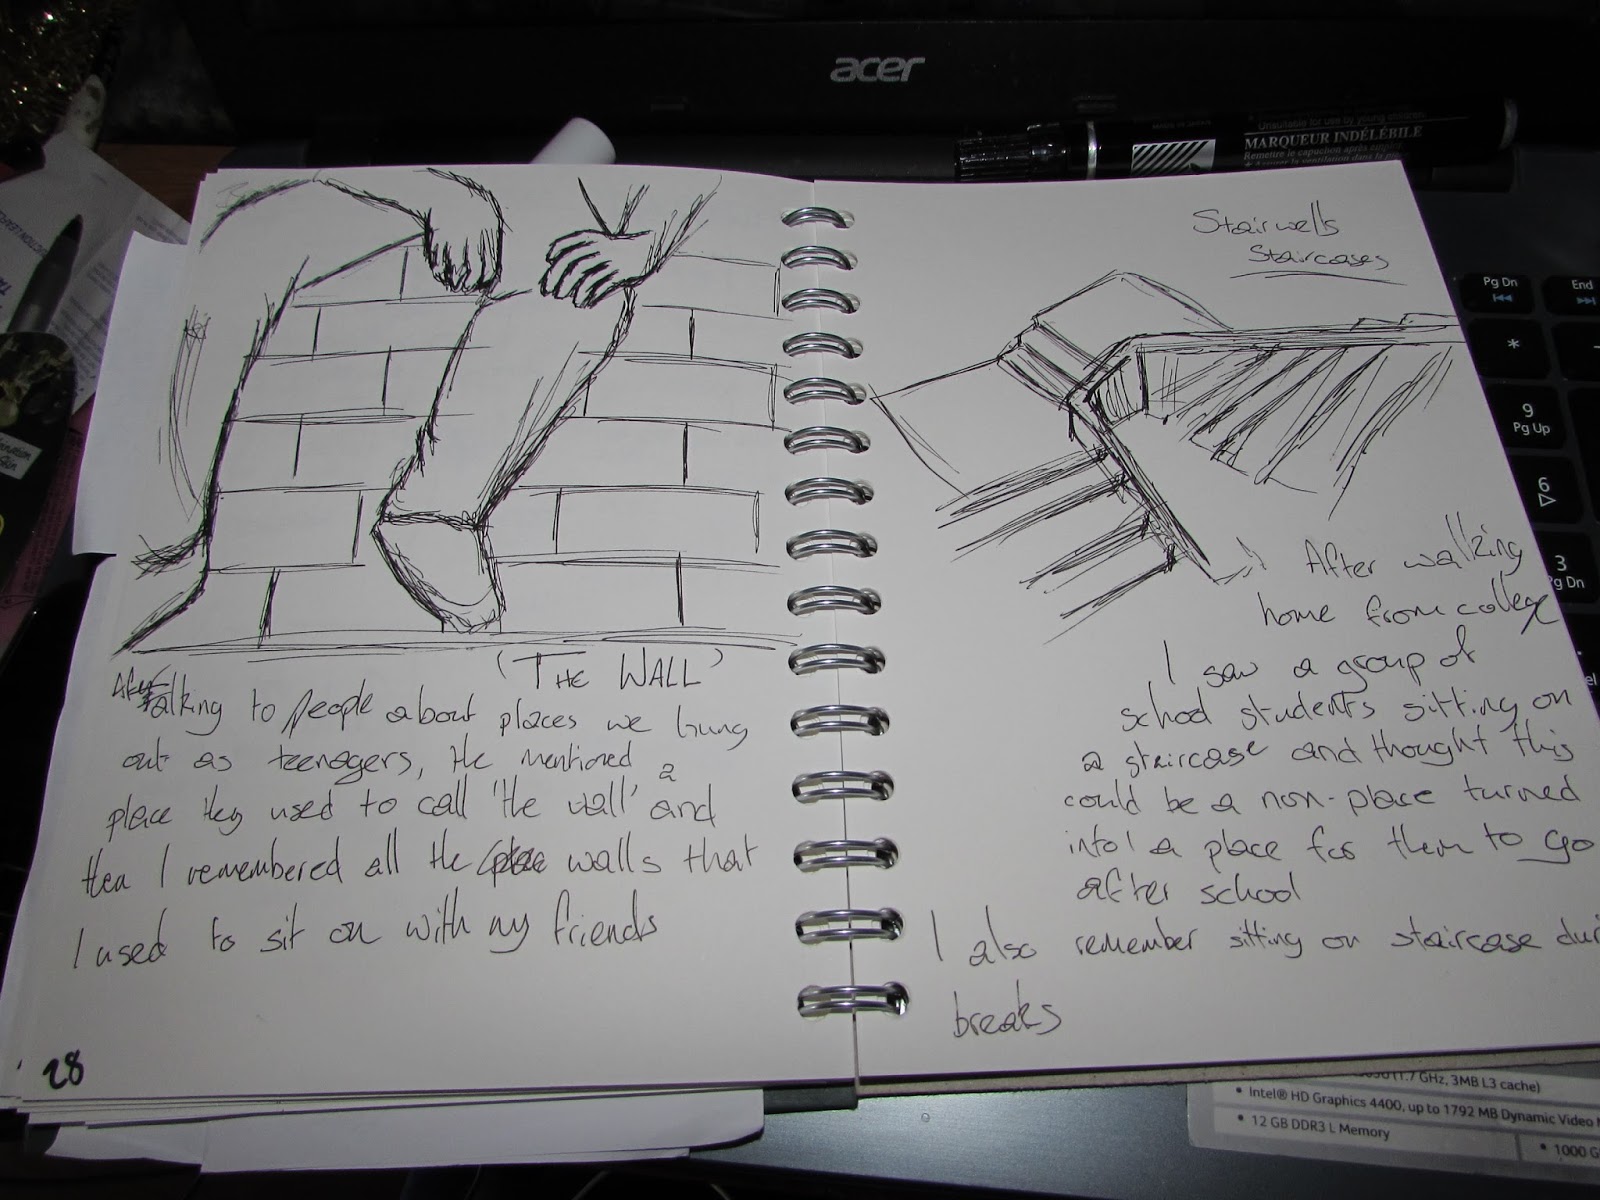 acer
Unsuitable for use by young children.
MARQUEUR INDÉLÉBILE
Remettre le capuchon après emploi.
Pg Dn
End
*
9
Pg Up
6
3
Pg Dn
(THE WALL)
After talking to people about places we hung
out as teenagers, He mentioned a
place they used to call 'the wall' and
then I remembered all the walls that
I used to sit on with my friends
28
Stairwells
Staircases
After walking
home from college
I saw a group of
school students sitting on
a staircase and thought this
could be a non-place turned
into a place for them to go
after school
I also remember sitting on staircase
breaks
(1.7 GHz, 3MB L3 cache)
• Intel® HD Graphics 4400, up to 1792 MB Dynamic Video
• 12 GB DDR3 L Memory
• 1000 G